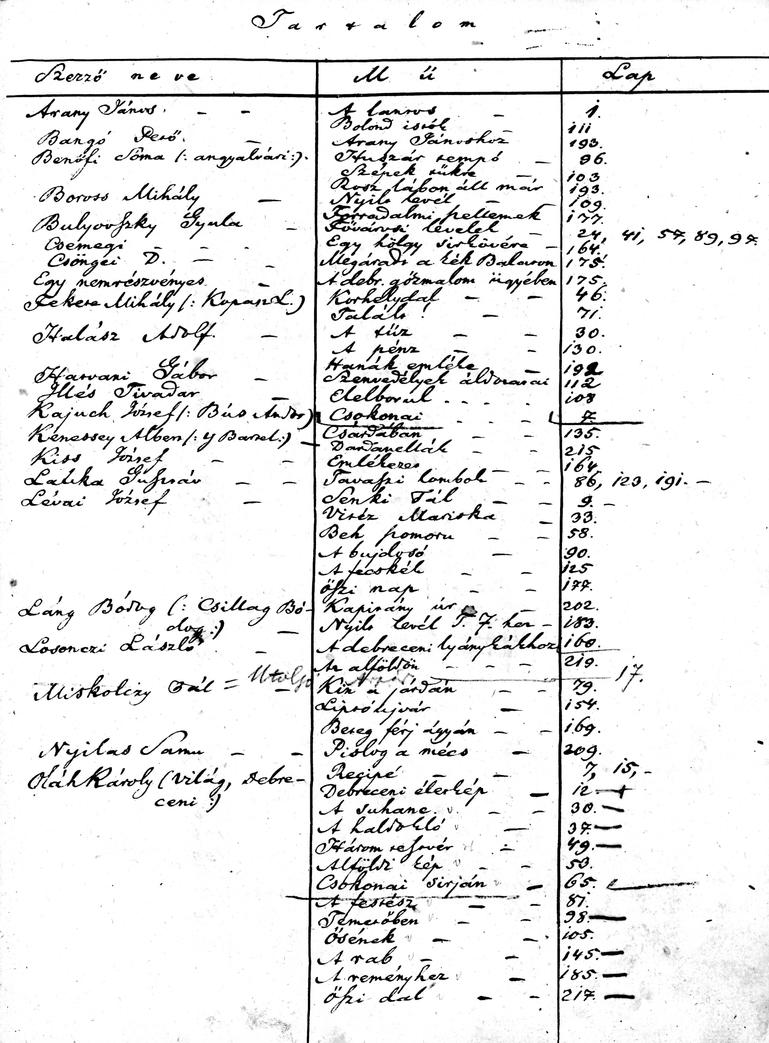 Tartalom
Szerző neve Mű Lap
Arany János. – – A lantos – 1.
Bolond Istók – 111
Bangó Pető. – Arany Jánoshoz 193.
Benőfi Soma (: angyalvári :). Huszár tempó – 96.
Szépek tükre – 103
Rosz lábon állt már 193.
Boross Mihály – Nyilt levél – 109.
Forradalmi jellemek 177.
Bulyovszky Gyula – Fővárosi levelek – 24, 41, 57, 89, 97.
Csemegi – – Egy hölgy sirkövére – 164.
Csöngei D. – – Megáradt a kék Balaton 175.
Egy nemrészvényes. – A debr. gőzmalom ügyében 175.
Fekete Mihály (: Kopasz L.) Korhelydal – – 46.
Talált! – – 71.
Halász Adolf. – A tűz – – 30.
A pénz – – 130.
Hatvani Gábor – Hanák emléke – 192
Illés Tivadar – Szenvedélyek áldozatai 112
Elelborúl . . . . 108
Kajuch József (: Bús Andor) Csokonai – – 7.
Kenessey Albert (: y Bartel :) – Csárdában – 135.
Dardanellák – 215
Kiss József – Emlékezes – 164.
Latka Gusztáv – Tavaszi lombok – 86, 123, 191. –
Lévai József – Senki Pál – 9. –
Vitéz Mariska – 33.
Beh szomoru – – 58.
A bujdosó – – 90.
A fecskék – – 125
Őszi nap – – 177.
Láng Bódog (: Csillag Bó- Kapitány úr – 202.
dog :) – Nyilt levél T. J. hez – 183.
Losonczi László – A debreceni lyánykákhoz 160.
Az alföldön – – – 219.
Miskolczy Pál = Utolsó 17.
Kin a járdán – 79.
Liptóújvár – 154.
Beteg férj ágyán – 169.
Nyilas Samu – – Pislog a mécs – 209.
Oláh Károly (Világ, Debre- Recipé – 7, 15, –
ceni :) Debreceni életkép – 12 –
A suhanc. – – 30. –
A haldokló – 37. –
Három testvér – 49. –
Alföldi kép – – 53.
Csokonai sirján – 65.
A festész – – 81.
Temetőben – – 98. –
Ősének – – 105.
A rab – – 145. –
A reményhez – 185. –
Őszi dal – – 217. –